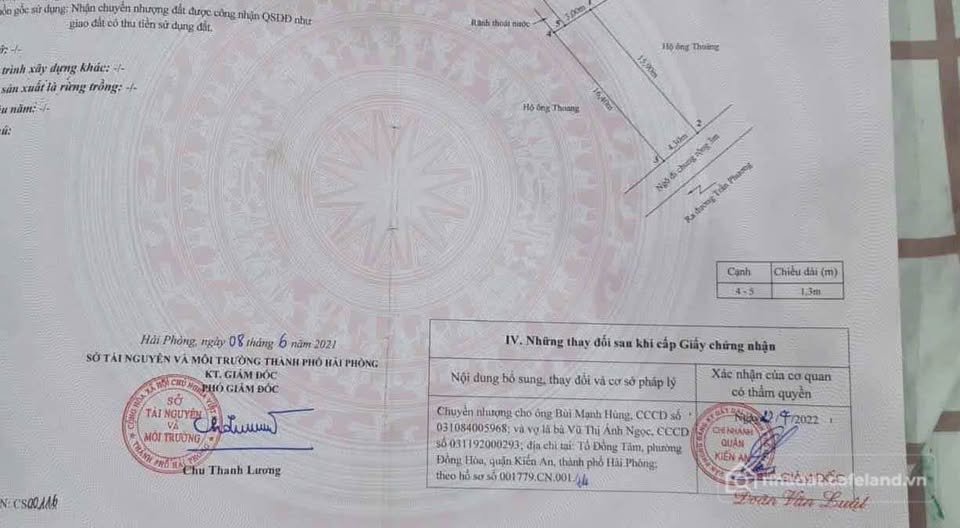 ồn gốc sử dụng: Nhận chuyển nhượng đất được công nhận QSDĐ như
giao đất có thu tiền sử dụng đất.
-/-
trình xây dựng khác: -/-
sản xuất là rừng trồng: -/-
u năm: -/-
ú:
Rãnh thoát nước
5
3,00m
4
1
Hộ ông Thoảng
15,90m
16,40m
Hộ ông Thoang
2
4,30m
3
Ngõ đi chung rộng 3m
Ra đường Trần Phương
Cạnh Chiều dài (m)
4 - 5 1,3m
Hải Phòng, ngày 08 tháng 6 năm 2021
SỞ TÀI NGUYÊN VÀ MÔI TRƯỜNG THÀNH PHỐ HẢI PHÒNG
KT. GIÁM ĐỐC
PHÓ GIÁM ĐỐC
CỘNG HÒA XÃ HỘI CHỦ NGHĨA VIỆT
SỞ
TÀI NGUYÊN
VÀ
MÔI TRƯỜNG
THÀNH PHỐ HẢI PHÒNG
Chu Thanh Lương
N: CS00116
IV. Những thay đổi sau khi cấp Giấy chứng nhận
Nội dung bổ sung, thay đổi và cơ sở pháp lý
Xác nhận của cơ quan
có thẩm quyền
Chuyển nhượng cho ông Bùi Mạnh Hùng, CCCD số
031084005968; và vợ là bà Vũ Thị Ánh Ngọc, CCCD
số 031192000293; địa chỉ tại: Tổ Đồng Tâm, phường
Đồng Hòa, quận Kiến An, thành phố Hải Phòng;
theo hồ sơ số 001779.CN.001
Ngày /2022
CHI NHÁNH
QUẬN
KIẾN AN
GIÁM ĐỐC
Đoàn Văn Luật
nhadat.cafeland.vn